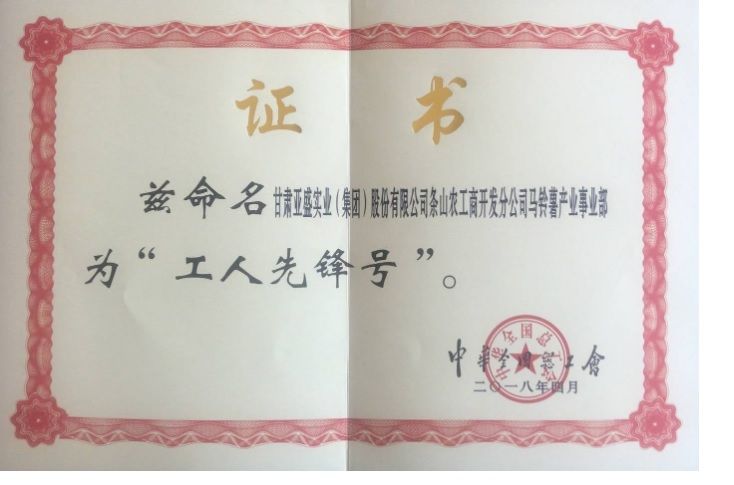 证书
兹命名甘肃亚盛实业（集团）股份有限公司条山农工商开发分公司马铃薯产业事业部
为“工人先锋号”。
中华全国总工會
中华全国总工会
二〇一八年四月